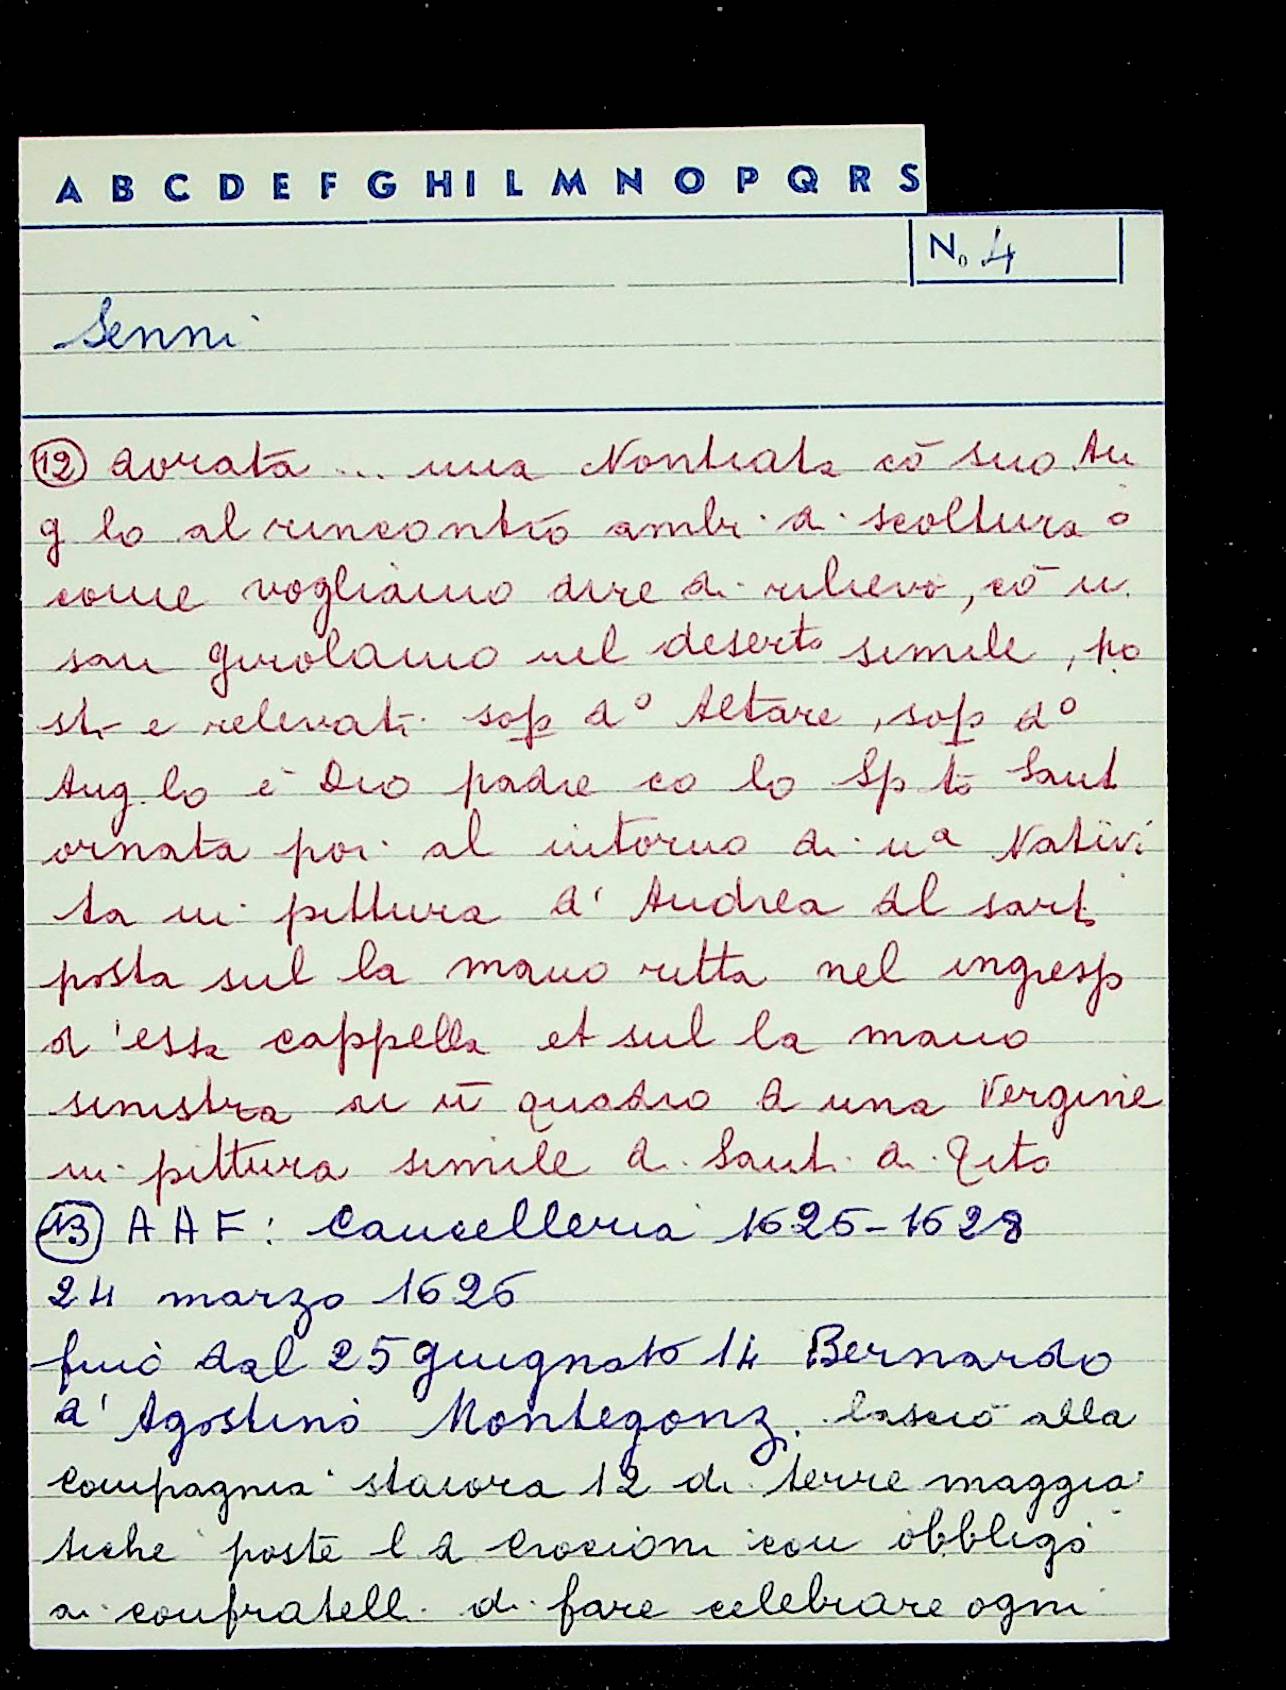 A B C D E F G H I L M N O P Q R S
No 4
Senni
12 dorata ... una Nontiata cō suo An
g lo al rincontro ambi di scoltura o
come vogliamo dire di rilievo, cō u.
san girolamo nel deserto simile, po
sti e relevati sop d° Altare, sop d°
Ang.lo è Dio padre co lo Sp to Sant
ornata poi al intorno di uª Nativi
ta in pittura d' Andrea del sarto
posta sul la mano ritta nel ingresp
d'essa cappella et sul la mano
sinistra di ū quadro d una Vergine
in pittura simile di Santi di Tito
13 A A F: Cancelleria 1625-1628
24 marzo 1626
fino dal 25 giugnato 14 Bernardo
d' Agostino Montegonz. lasciò alla
compagnia staiora 12 di terre maggia
tiche poste l a Crocioni con obbligo
ai confratelli di fare celebrare ogni